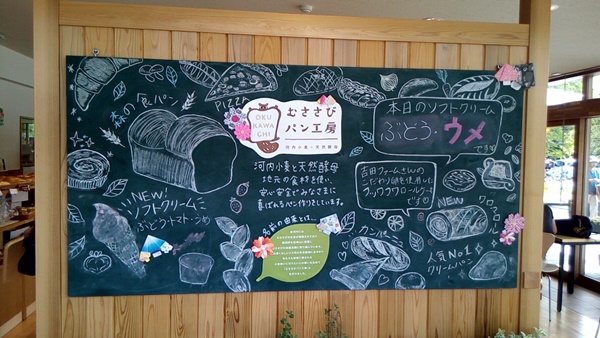 森の食パン
PIZZA
OKU
KAWA
CHI
むささび
パン工房
河内小麦・天然酵母
河内小麦と天然酵母
地元の食材を使い、
安心安全でみなさまに
喜ばれるパン作りをしています。
NEW
ソフトクリーム
ぶどう・トマト・うめ
名前の由来とは…
本日のソフトクリーム
ぶどう・ウメ
です
吉田ファームさんの
こだわり卵を使用した
フワフワロールケーキ
です
NEW
カンパーニュ
人気No1
クリームパン